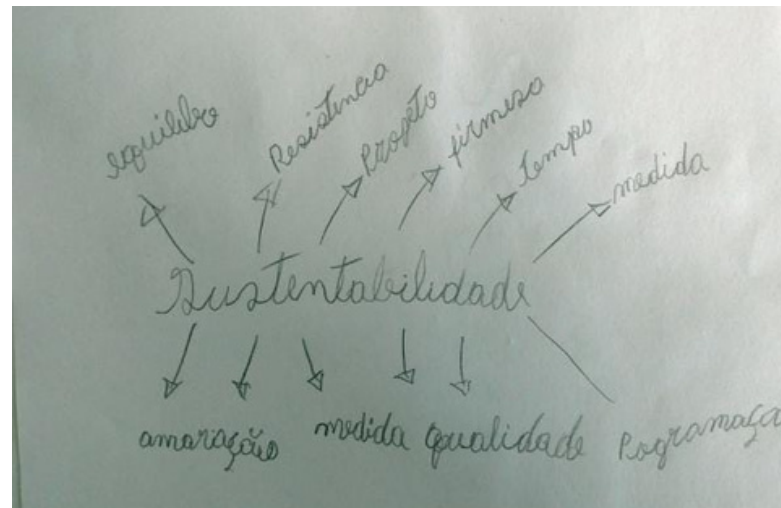 equilibro
Resistencia
Projeto
firmesa
tempo
medida
Sustentabilidade
amaração
medida
qualidade
Programaça